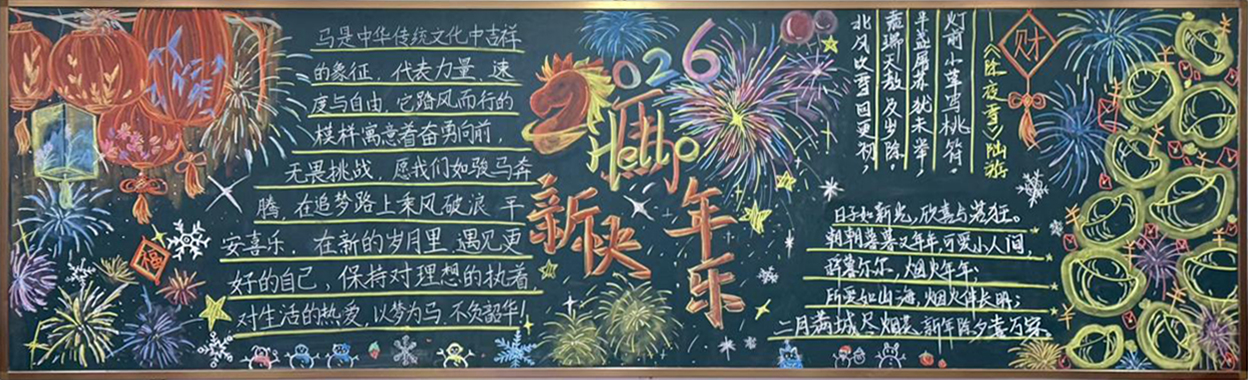 马是中华传统文化中吉祥
的象征，代表力量、速
度与自由，它踏风而行的
模样寓意着奋勇向前，
无畏挑战，愿我们如骏马奔
腾，在追梦路上乘风破浪 平
安喜乐，在新的岁月里，遇见更
好的自己，保持对理想的执着，
对生活的热爱，以梦为马，不负韶华！
2026
Hello
新年快乐
北风吹雪四更初，
嘉瑞天教及岁除。
半盏屠苏犹未举，
灯前小草写桃符。
《除夜雪》陆游
财
日子如新光，欣喜与若狂。
朝朝暮暮又年年，可爱小人间，
辞暮尔尔，烟火年年；
所爱如山海，烟火伴长明；
二月满城尽烟云，新年除夕喜万家